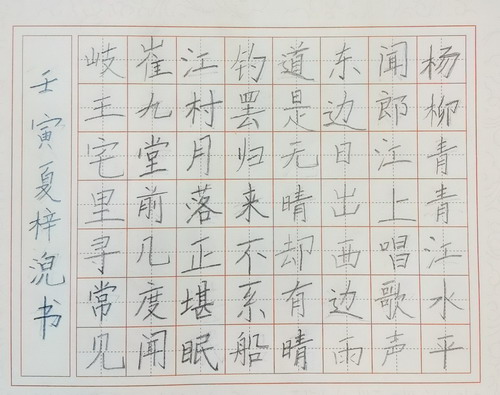 杨柳青青江水平
闻郎江上唱歌声
东边日出西边雨
道是无晴却有晴
钓罢归来不系船
江村月落正堪眠
崔九堂前几度闻
岐王宅里寻常见
壬寅夏梓书